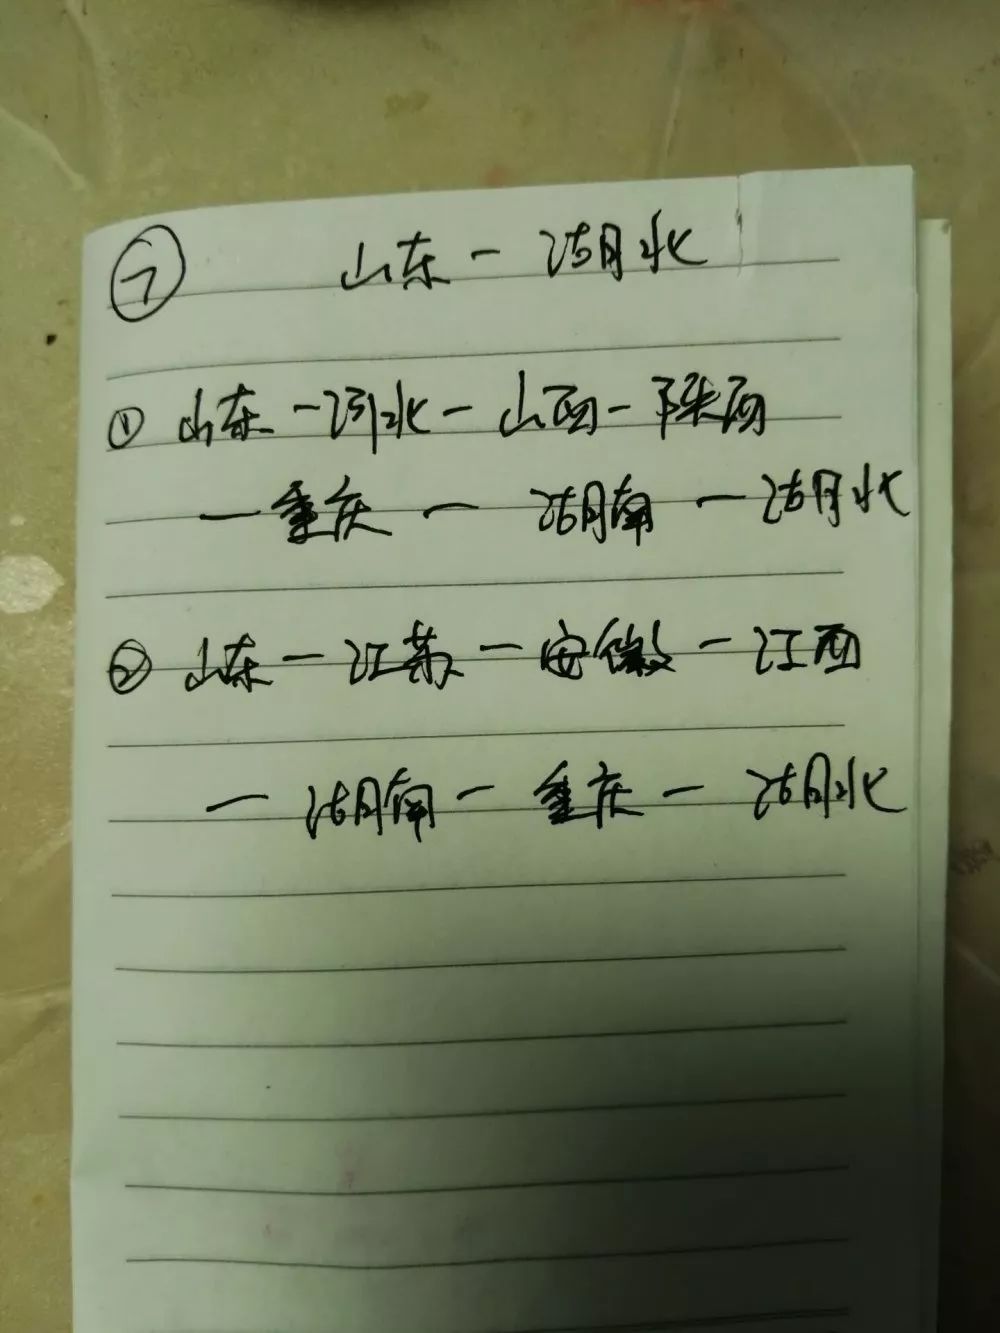 ⑦ 山东-湖北
① 山东-河北-山西-陕西
-重庆-湖南-湖北
② 山东-江苏-安徽-江西
-湖南-重庆-湖北